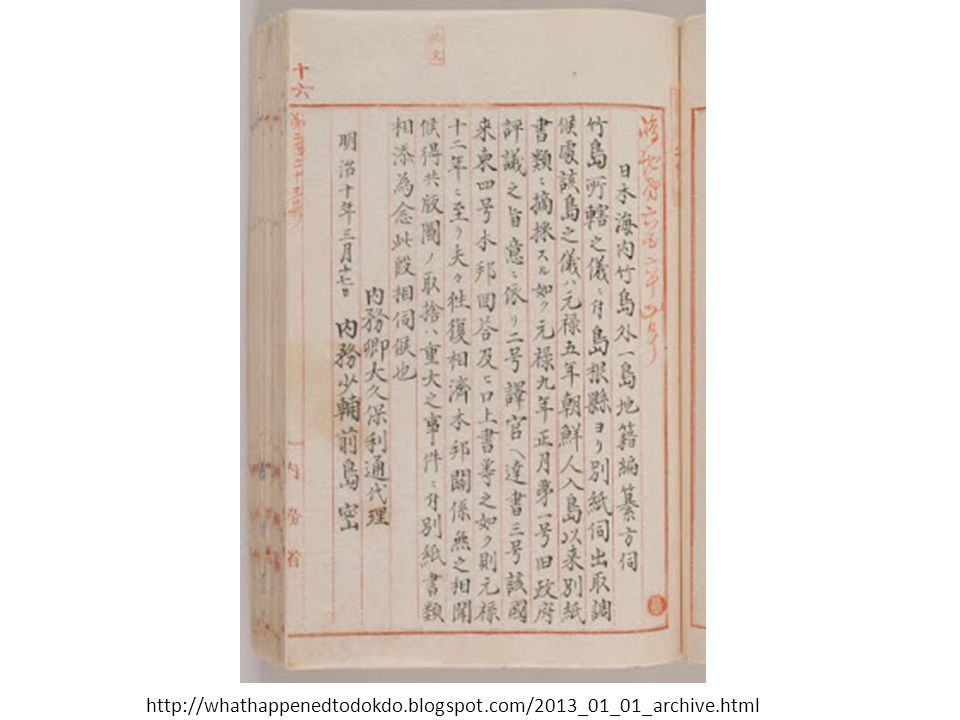 日本海内竹島外一島地籍編纂方伺
竹島所轄之儀ニ付島根縣ヨリ別紙伺出取調
候處該島之儀ハ元禄五年朝鮮人入島以来別紙
書類ニ摘採スル如ク元禄九年正月第一号旧政府
評議之旨意ニ依リ二号譯官ヘ達書三号該國
来柬四号本邦回答及ヒ口上書等之如ク則元禄
十二年ニ至リ夫々往復相濟本邦關係無之相聞
候得共版圖ノ取捨ハ重大之事件ニ付別紙書類
相添為念此段相伺候也
内務卿大久保利通代理
明治十年三月十七日 内務少輔前島密
十六
内務省
http://whathappenedtodokdo.blogspot.com/2013_01_01_archive.html